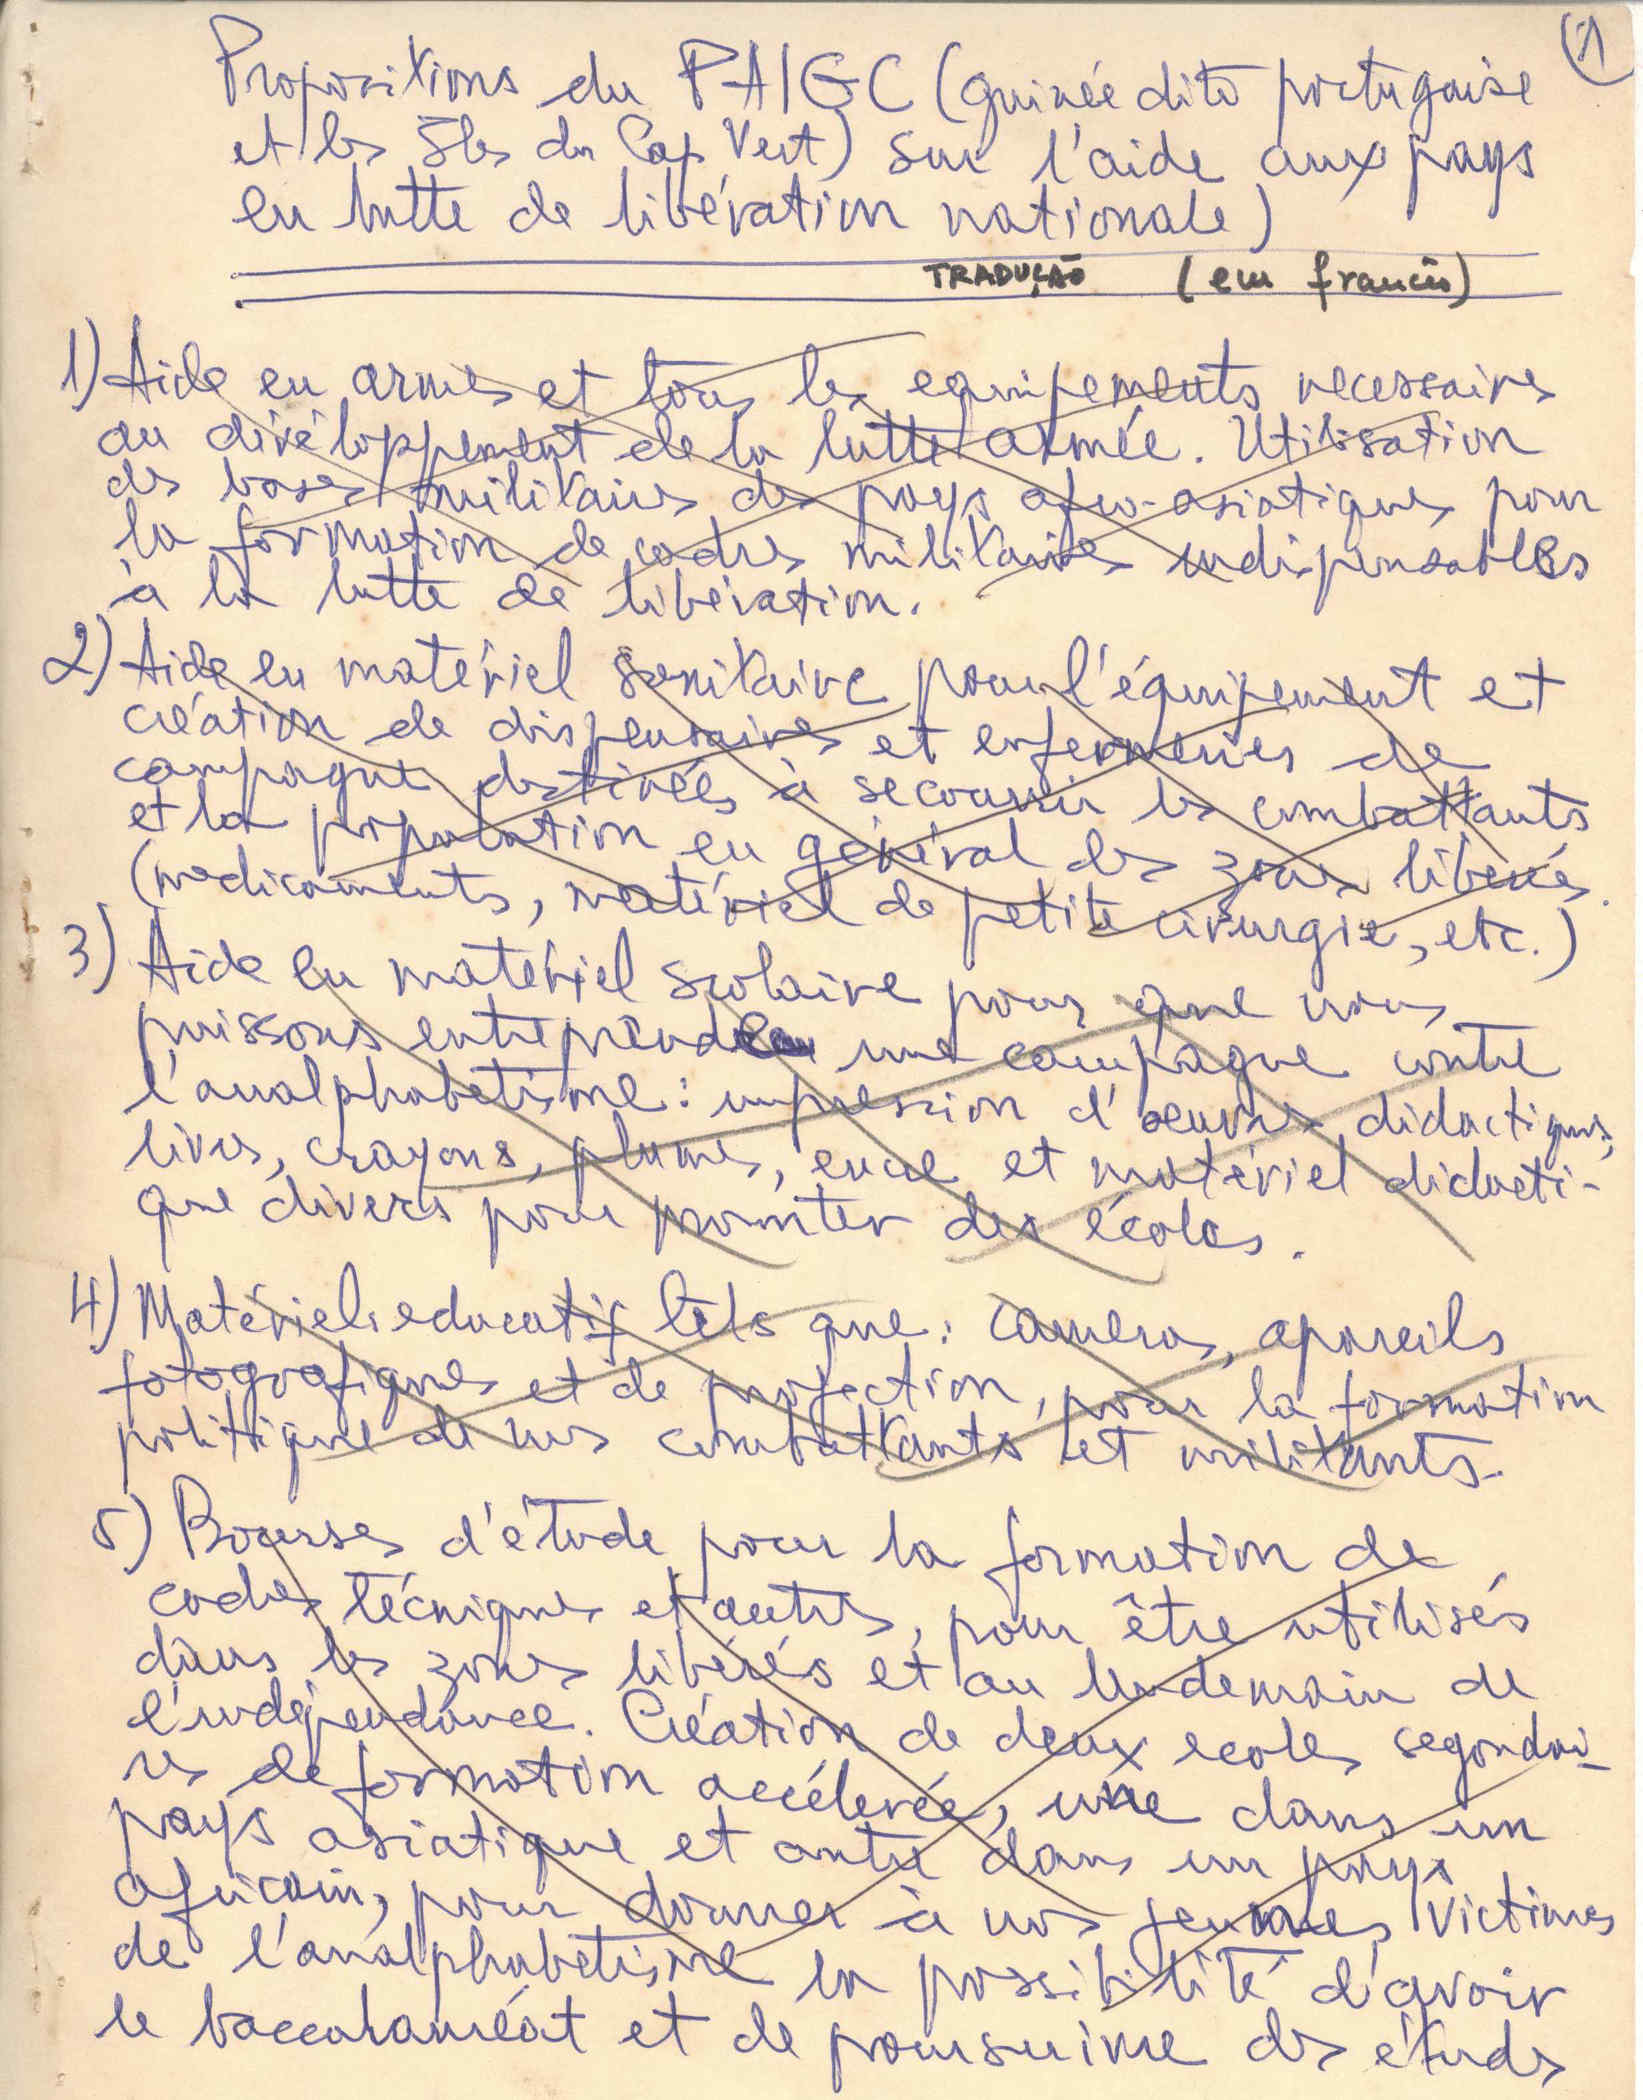 1
Propositions du PAIGC (guinée dite portugaise
et les îles du Cap Vert) sur l'aide aux pays
en lutte de libération nationale)
TRADUÇÃO (em francês)
1) Aide en armes et tous les equipements necessaires
au dévéloppement de la lutte armée. Utilisation
des bases militaires des pays afro-asiatiques pour
la formation de cadres militaires indispensables
à la lutte de libération.
2) Aide en matériel sanitaire pour l'équipement et
création de dispensaires et enfermeries de
campagne destinées à secourir les combattants
et la population en général des zones libérés.
(medicaments, matériel de petite cirurgie, etc.)
3) Aide en matériel scolaire pour que nous
puissons entreprendre une campagne contre
l'analphabetisme: impression d'oeuvres didactiques,
livres, crayons, plumes, encre et matériel didacti-
que divers pour monter des écoles.
4) Matériel educatif tels que: cameras, apareils
fotografiques et de projection, pour la formation
politique de nos combattants et militants.
5) Bourses d'étude pour la formation de
cadres técniques et autres, pour être utilisés
dans les zones libérés et au lendemain de
l'indépendance. Création de deux ecoles segondai-
res de formation accélerée, une dans un
pays asiatique et autre dans un pays
africain, pour donner à nos jeunes victimes
de l'analphabetisme la possibilité d'avoir
le baccalauréat et de poursuivre des études